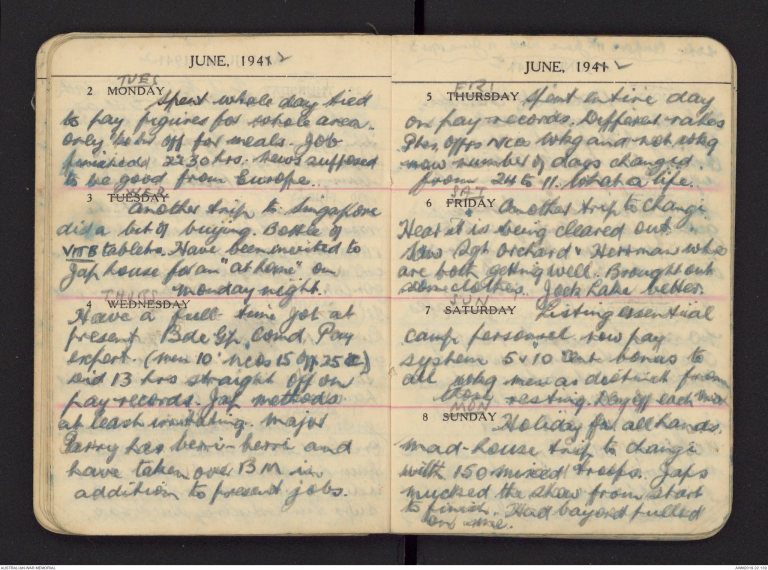 JUNE, 1941 2
TUES
2 MONDAY Spent whole day tied
to pay figures for whole area.
only hr off for meals. Job
finished 2230 hrs. News supposed
to be good from Europe.
WED
3 TUESDAY
Another trip to Singapore
did a bit of buying. Bottle of
VIT B tablets. Have been invited to
Jap house for an "at home" on
Monday night.
THURS
4 WEDNESDAY
Have a full time job at
present Bde Gp. Comd. Pay
expert. (men 10 NCOs 15 Off 25 c)
Did 13 hrs straight off on
pay records. Jap methods
at least irritating. Major
Parry has berri-berri and
have taken over 13 M in
addition to present jobs.
JUNE, 1941 2
FRI
5 THURSDAY Spent entire day
on pay records. Different rates
Ptes, Offrs NCOs wkg and not wkg
now number of days changed
from 24 to 11. What a life.
SAT
6 FRIDAY Another trip to Changi
Hear it is being cleared out.
Saw Sgt Orchard & Herrman who
are both getting well. Brought out
some clothes. Jock Lake better.
SUN
7 SATURDAY Listing essential
camp personnel now pay
system 5 v 10 cent bonus to
all wkg men as distinct from
those resting. Day off each
MON
8 SUNDAY Holiday for all hands.
mad-house trip to Changi
with 150 mixed troops. Japs
mucked the show from start
to finish. Had bayonet pulled
on me.
AUSTRALIAN WAR MEMORIAL